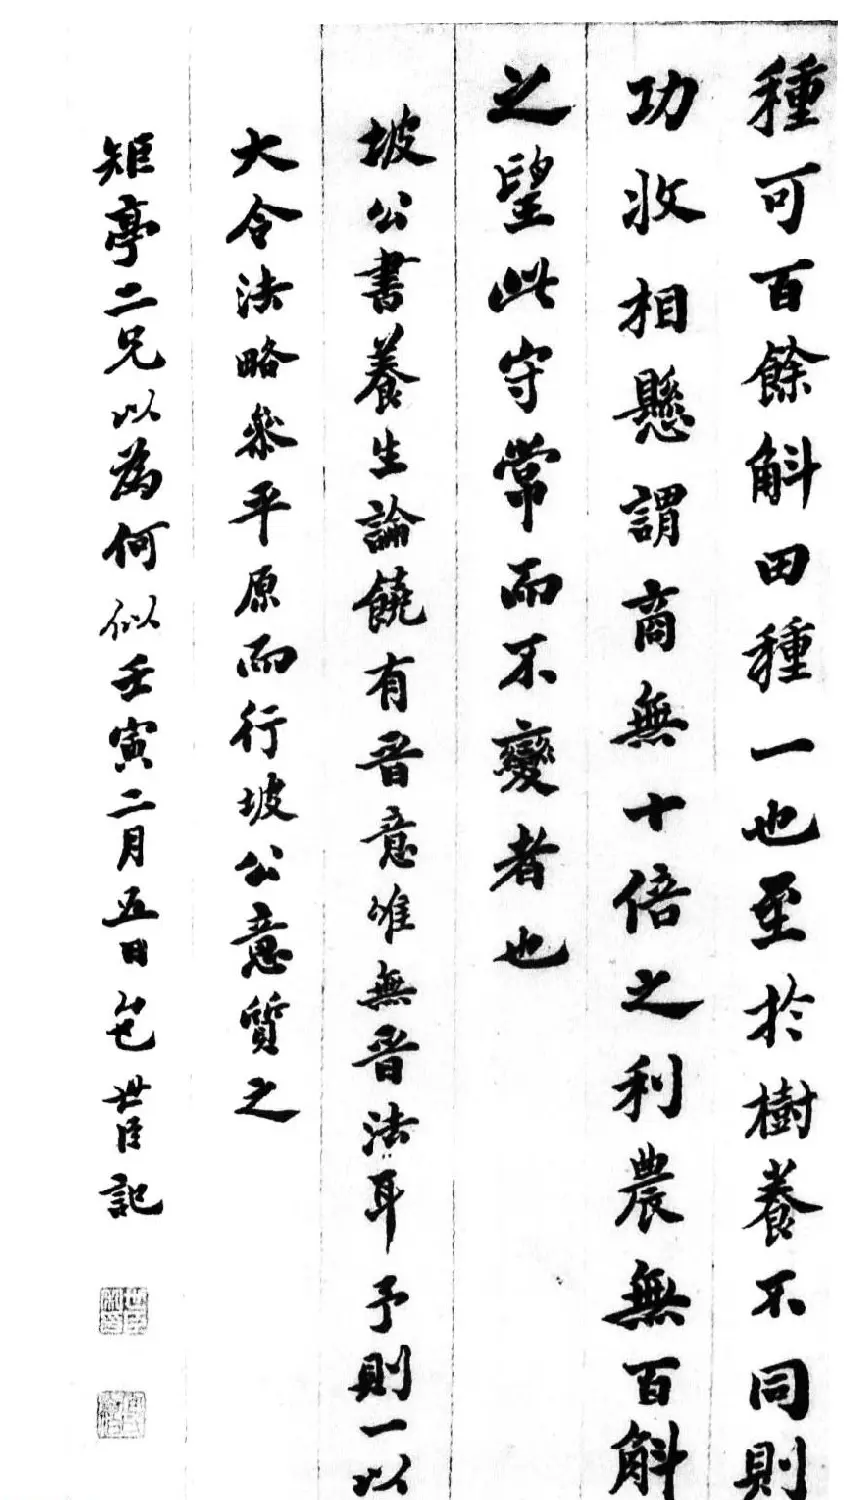 種可百餘斛田種一也至於樹養不同則
功收相懸謂商無十倍之利農無百斛
之望此守常而不變者也
坡公書養生論饒有晉意唯無晉法耳予則一以
大令法略參平原而行坡公意質之
矩亭二兄以為何似壬寅二月五日包世臣記